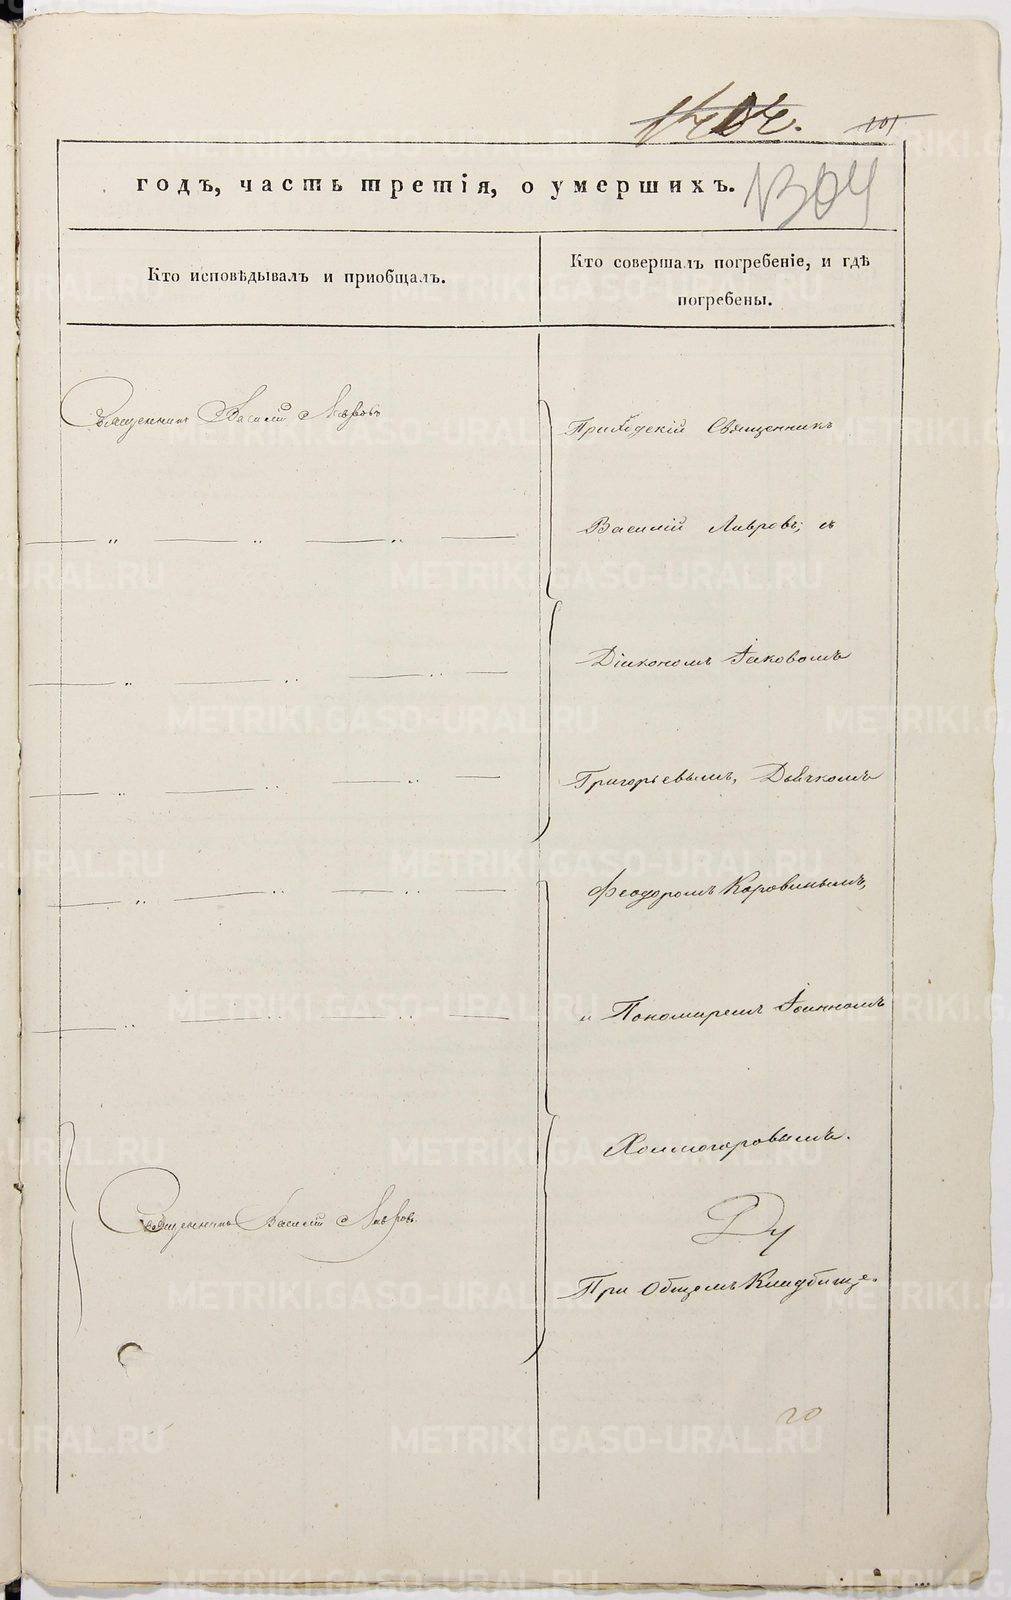 101
годъ, часть третія, о умершихъ.
1304
Кто исповѣдывалъ и приобщалъ.
Кто совершалъ погребеніе, и гдѣ
погребены.
Священникъ Василій Лавровъ
Приходскій Священникъ
Василій Лавровъ; съ
Діакономъ Іаковомъ
Григорьевымъ, Дьячкомъ
Феодоромъ Коровинымъ,
и Пономаремъ Іоанномъ
Холмогоровымъ.
Священникъ Василій Лавровъ
При Общемъ Кладбище.
20
METRIKI.GASO-URAL.RU